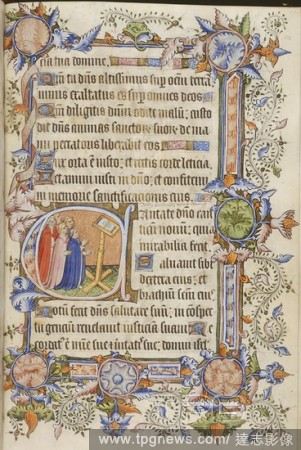 tua domine,
Qm̄ tu dn̄s altissimus sup̄ oēm terrā
nimis exaltatus es sup̄ omnes deos
Qui diligitis dn̄m odite malū; custo
dit dn̄s animas sanctorꝝ suorꝝ de ma
nu peccatoris liberabit eos
Lux orta ē iusto; et rectis corde leticia
Letamini iusti in dn̄o; et confitemi
ni memorie sanctificationis eius
Cantate dn̄o can
ticū nouū; quia
mirabilia fecit
Saluauit sibi
dextera eius; et
brachiū scm̄ eius
Notū fecit dn̄s salutare suū; in conspec
tu gentiū reuelauit iusticiā suam
Recordatꝰ ē mīe sue
domui isrl̄
www.tpgnews.com/ 達志影像